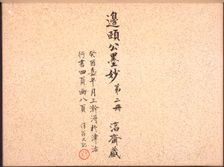 邊頤公墨妙 第二冊 湉齋藏
癸酉嘉平月上澣得於津沽
行書四頁兩八頁